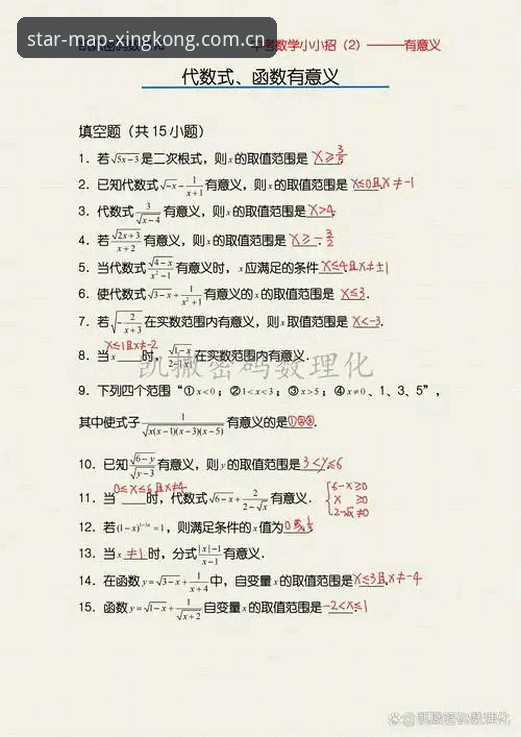 star-map-xingkong.com.cn
中考数学小小招（2）———有意义
代数式、函数有意义
填空题（共 15 小题）
1. 若√(5x-3)是二次根式，则 x 的取值范围是 x≥3/5
2. 已知代数式√(-x) - 1/(x+1)有意义，则 x 的取值范围是 x≤0且x≠-1
3. 代数式 3/√(x-4) 有意义，则 x 的取值范围是 x>4.
4. 若 √(2x+3)/(x+2) 有意义，则 x 的取值范围是 x≥-3/2
5. 当代数式 √(4-x)/(x²-1) 有意义时，x 应满足的条件 x≤4且x≠±1
6. 使代数式√(3-x) + 1/(x²+1)有意义的 x 的取值范围是 x≤3.
7. 若√(-2/(x+3))在实数范围内有意义，则 x 取值范围是 x<-3.
8. 当 x x≤1且x≠-2 时，在实数范围内有意义.
凯撒密码数理化
9. 下列四个范围“① x<0；② 1<x<3；③ x>5；④ x≠0、1、3、5”，
其中使式子 1/√(x(x-1)(x-3)(x-5)) 有意义的是①②③.
10. 已知 √(6-y)/√(y-3) 有意义，则 y 的取值范围是 3<y≤6
11. 当 0≤x≤6且x≠4 时，代数式√(6-x) + 2/(2-√x) 有意义. { 6-x≥0 x≥0 2-√x≠0
12. 若 =1，则满足条件的 x 值为 0或
13. 当 x ≠1 时，分式 (|x|-1)/(x-1) 有意义.
14. 在函数 y=√(3-x) + 1/(x+4) 中，自变量 x 的取值范围是 x≤3且x≠-4
15. 函数 y=√(1-x) + 1/√(x+2) 自变量 x 的取值范围是 -2<x≤1
凯撒密码数理化